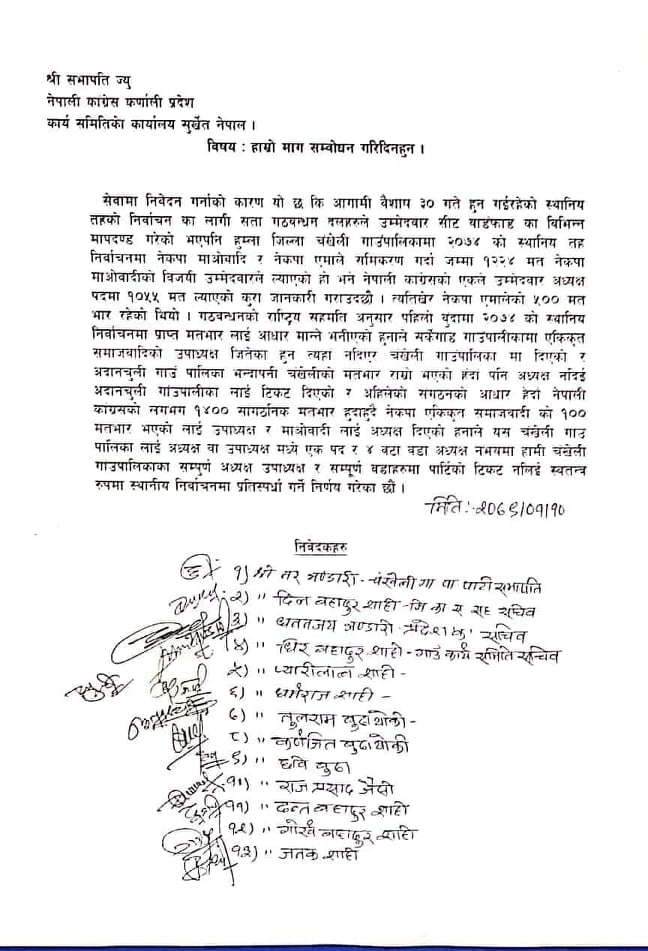 श्री सभापति ज्यु
नेपाली कांग्रेस कर्णाली प्रदेश
कार्य समितिको कार्यालय सुर्खेत नेपाल ।
विषय : हाम्रो माग सम्वोधन गरिदिनहुन ।
सेवामा निवेदन गर्नाको कारण यो छ कि आगामी वैशाप ३० गते हुन गईरहेको स्थानिय
तहको निर्वाचन का लागी सता गठबन्धन दलहरुले उम्मेदवार सीट वाडंफाड का विभिन्न
मापदण्ड गरेको भएपनि हुम्ला जिल्ला चंखेली गाउंपालिकामा २०७४ को स्थानिय तह
निर्वाचनमा नेकपा माओवादि र नेकपा एमाले समिकरण गर्दा जम्मा १२२४ मत नेकपा
माओवादीको विजयी उम्मेदवारले ल्याएको हो भने नेपाली कांग्रेसको एकले उम्मेदवार अध्यक्ष
पदमा १०५५ मत ल्याएको कुरा जानकारी गराउदछौ । त्यतिखेर नेकपा एमालेको ५०० मत
भार रहेको थियो । गठवन्धनको राष्ट्रिय सहमति अनुसार पहिलो वुदामा २०७४ को स्थानिय
निर्वाचनमा प्राप्त मतभार लाई आधार मान्ने भनीएको हुनाले सर्केगाड गाउंपालीकामा एकिकृत
समाजवादिको उपाध्यक्ष जितेका हुन त्यहा नदिएर चंखेली गाउंपालिका मा दिएको र
अदानचुली गाउं पालिका भन्दापनी चंखेलीको मतभार राम्रो भएको हेदा पनि अध्यक्ष नदिई
अदानचुली गाउंपालीका लाई टिकट दिएको र अहिलेको संगठनको आधार हेर्दा नेपाली
कांग्रेसको लगभग १४०० सांगठानिक मतभार हुदाहुदै नेकपा एकिकृत समाजवादी को १००
मतभार भएको लाई उपाध्यक्ष र माओवादी लाई अध्यक्ष दिएको हनाले यस चंखेली गाउ
पालिका लाई अध्यक्ष वा उपाध्यक्ष मध्ये एक पद र ४ वटा वडा अध्यक्ष नभयमा हामी चंखेली
गाउंपालिकाका सम्पुर्ण अध्यक्ष उपाध्यक्ष र सम्पूर्ण वडाहरुमा पार्टिको टिकट नलिई स्वतन्त्र
रुपमा स्थानीय निर्वाचनमा प्रतिस्पर्धा गर्ने निर्णय गरेका छौं ।
मिति:- २०७९/०१/१०
निवेदकहरु
१) श्री नर भण्डारी - चंखेली गा पा पार्टी सभापति
२) " दिन बहादुर शाही - जि का स सह सचिव
३) " भण्डारी - प्रदेश सचिव
४) " धिर बहादुर शाही - गाउं कार्य समिति सचिव
५) " प्यारीलाल शाही -
६) " धर्मराज शाही -
७) " तुलराम बुढाथोकी -
८) " कर्णजित बुढाथोकी
९) " छवि बुढा
१०) " राज प्रसाद जैसी
११) " दन्त बहादुर शाही
१२) " गोर्ख बहादुर शाही
१३) " जतक शाही